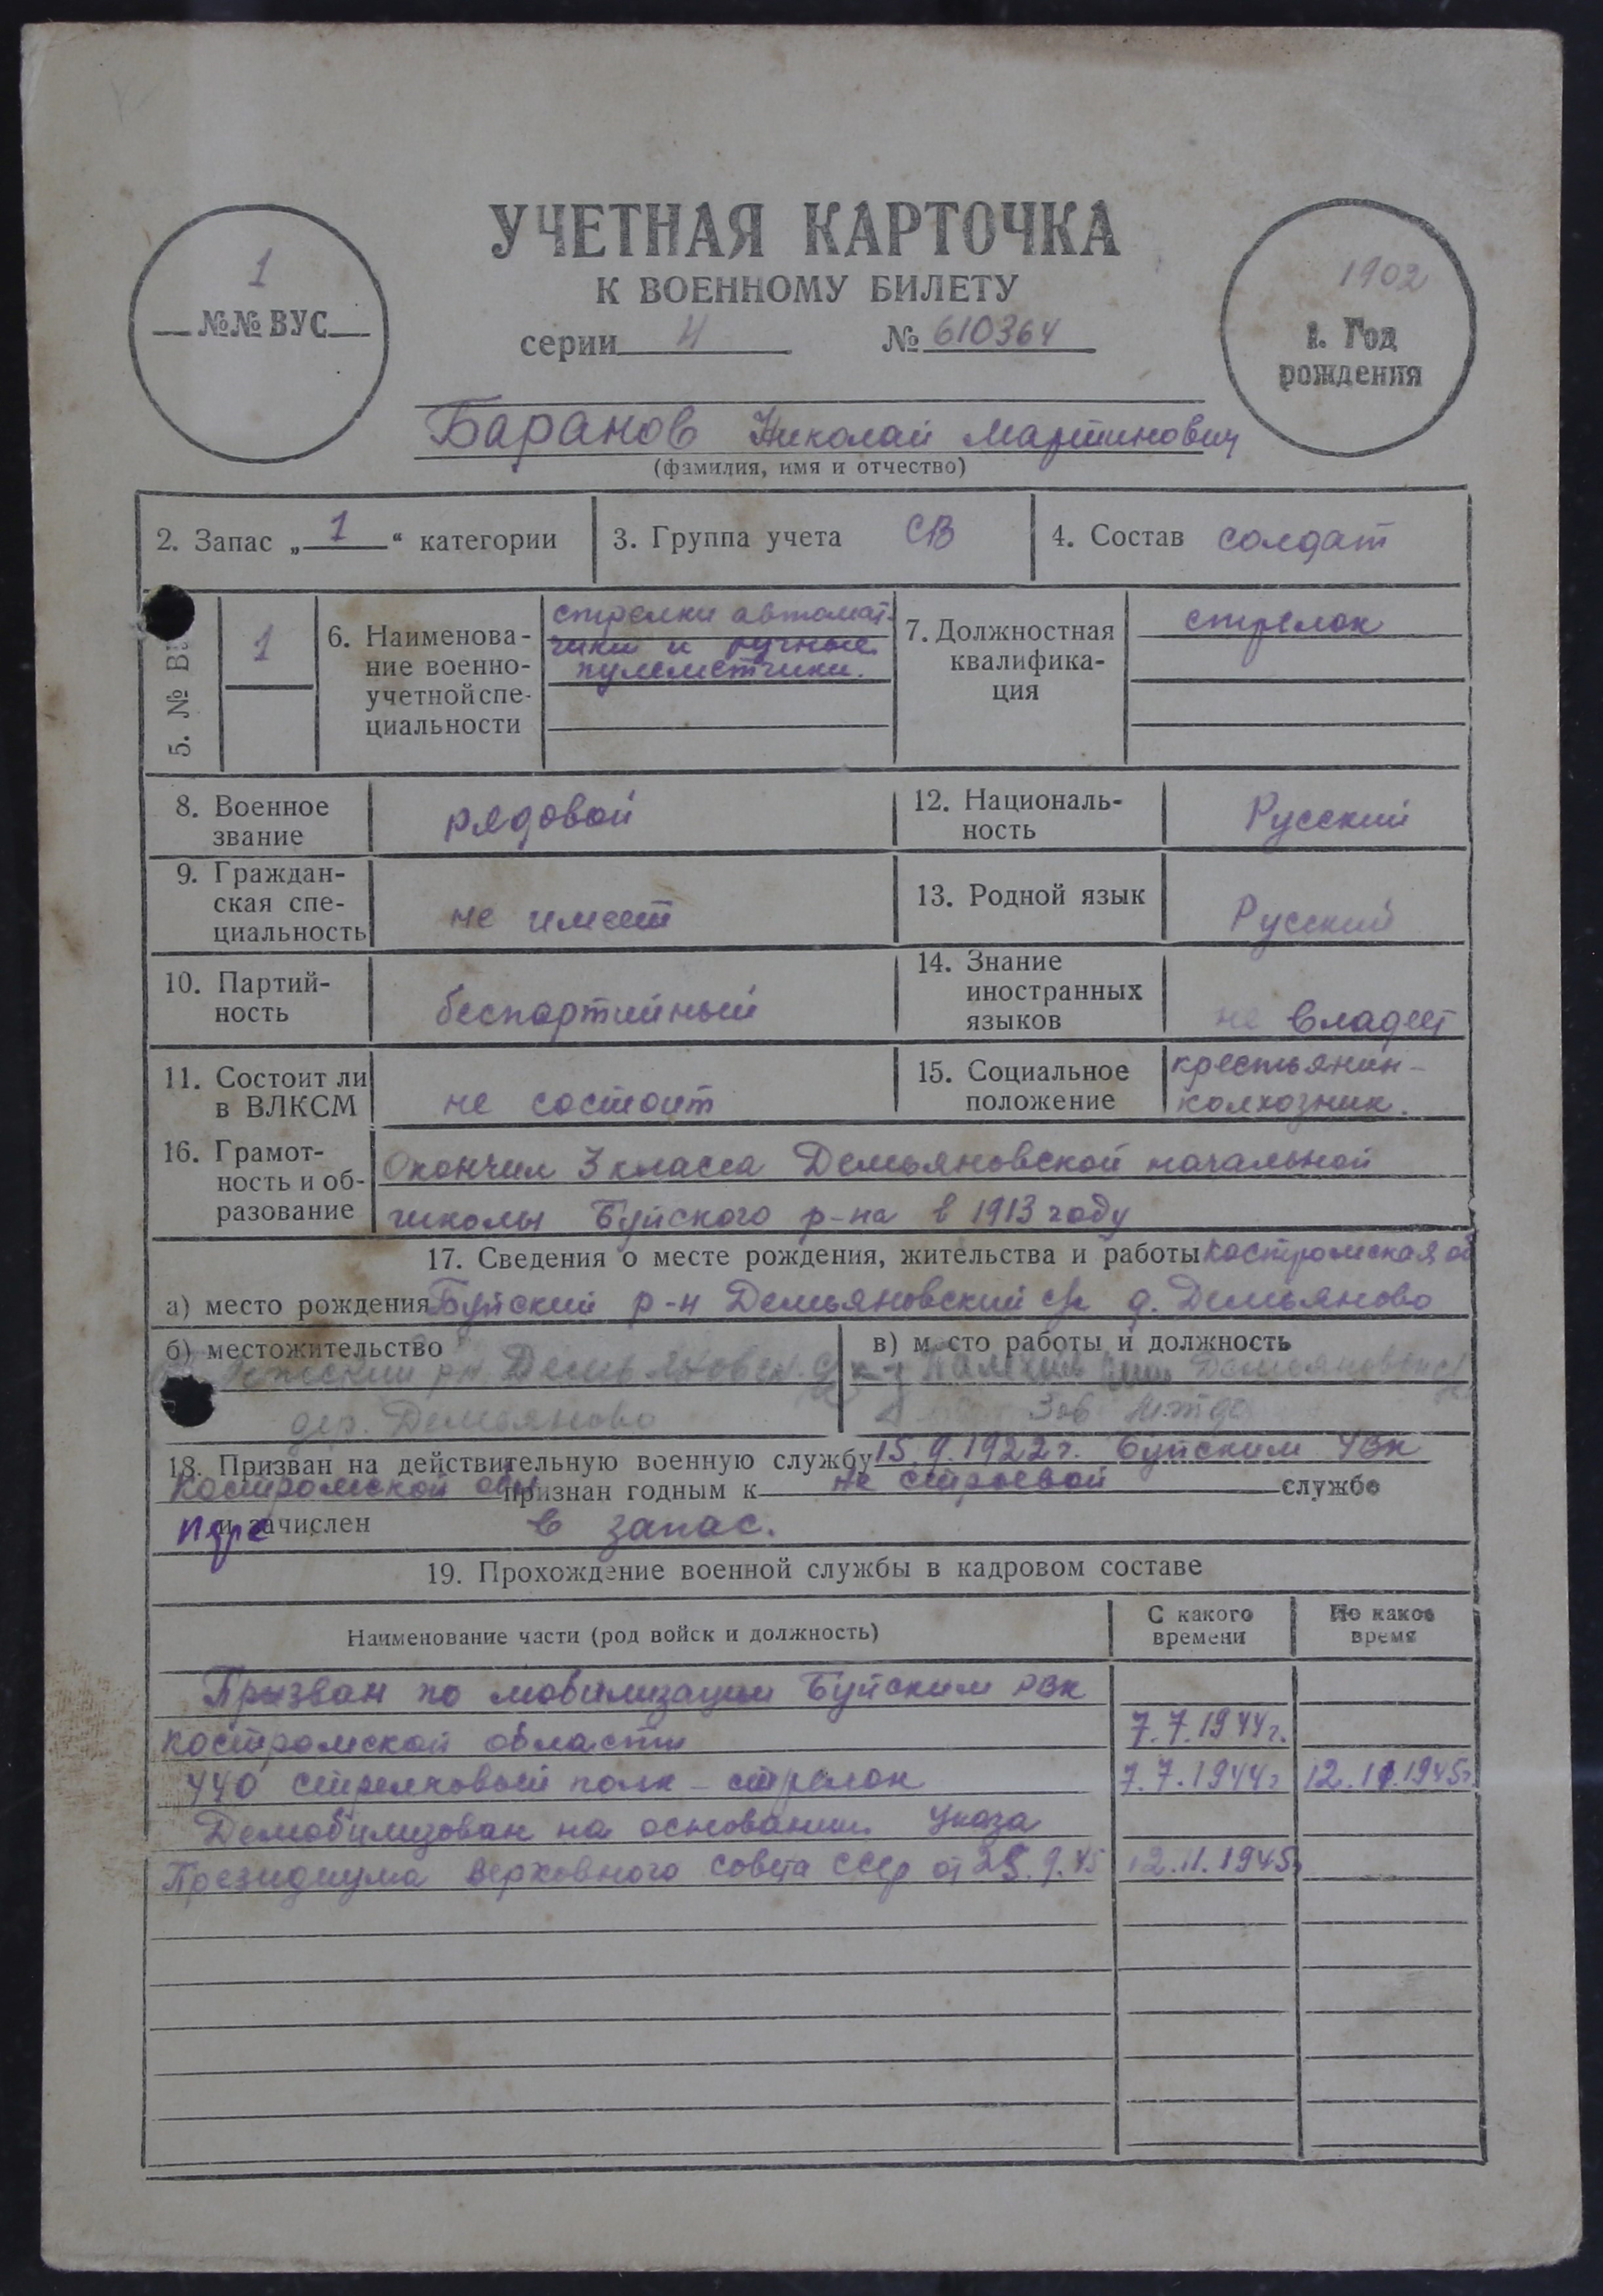 УЧЕТНАЯ КАРТОЧКА
К ВОЕННОМУ БИЛЕТУ
серии Н № 610364
1
№№ ВУС
1902
1. Год
рождения
Баранов Николай Мартинович
(фамилия, имя и отчество)
2. Запас „1“ категории
3. Группа учета СВ
4. Состав солдат
5. № В
1
6. Наименова-
ние военно-
учетной спе-
циальности
стрелки автомат-
чики и ручные
пулеметчики.
7. Должностная
квалифика-
ция
стрелок
8. Военное
звание
рядовой
12. Националь-
ность
Русский
9. Граждан-
ская спе-
циальность
не имеет
13. Родной язык
Русский
10. Партий-
ность
беспартийный
14. Знание
иностранных
языков
не владеет
11. Состоит ли
в ВЛКСМ
не состоит
15. Социальное
положение
крестьянин-
колхозник.
16. Грамот-
ность и об-
разование
Окончил 3 класса Демьяновской начальной
школы Буйского р-на в 1913 году
17. Сведения о месте рождения, жительства и работы Костромская об
а) место рождения Буйский р-н Демьяновский с/с д. Демьяново
б) местожительство
рн Демьяновск.
дер. Демьяново
в) место работы и должность
к-з Демьяновск
Зав
18. Призван на действительную военную службу 15.9.1922г. Буйским УВК
Костромской обл признан годным к не строевой службе
и зачислен в запас.
19. Прохождение военной службы в кадровом составе
Наименование части (род войск и должность)
С какого
времени
По какое
время
Призван по мобилизации Буйским РВК
Костромской области 7.7.1944г.
440 стрелковый полк - стрелок 7.7.1944г 12.11.1945г.
Демобилизован на основании Указа
Президиума Верховного Совета СССР от 25.9.45 12.11.1945г